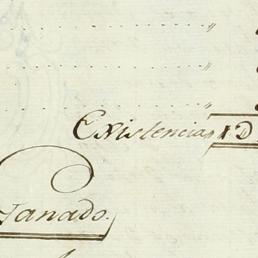 Existencias 1D
Ganado.